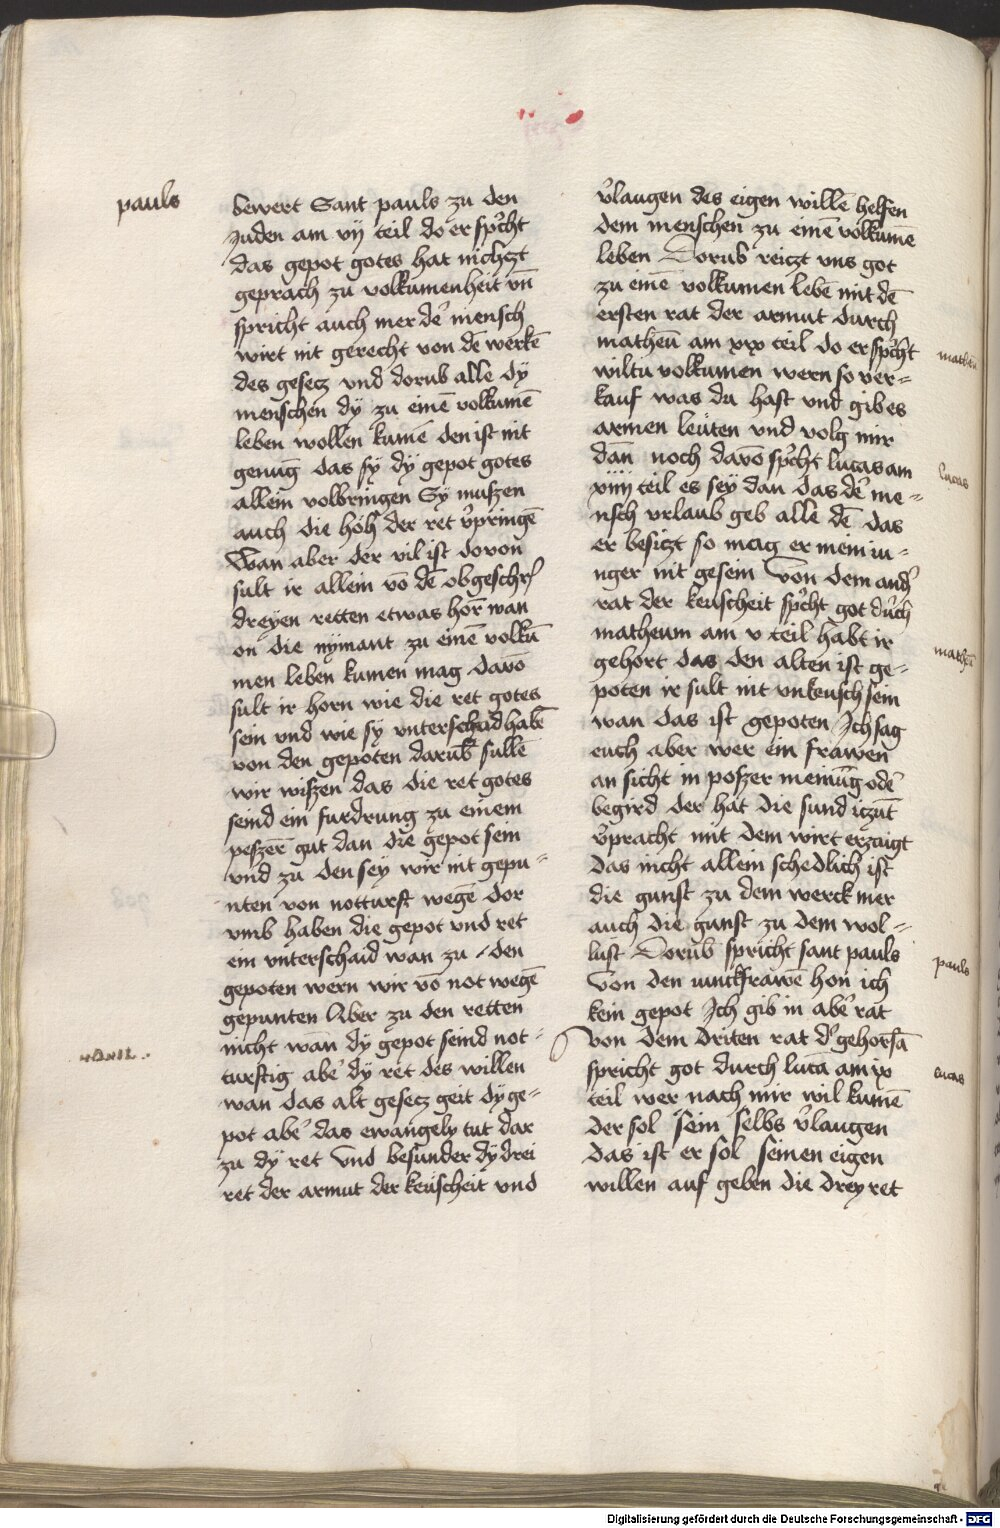 pauls
bewert Sant pauls zu den
Juden am vij teil do er sp̉cht
das gepot gotes hat nichczt
geprach zu volkumenheit vn̄
spricht auch mer de᷑ mensch
wirt nit gerecht von dē werkē
des gesecz vnd dorub alle dy
menschen dy zu einē volkumē
leben wollen kumē den ist nit
genug das sy̎ dy̎ gepot gotes
allein volbringen Sy̎ muszen
auch die höh der ret v̉pringē
Wan aber der vil ist dovon
sult ir allein vō dē obgeschr̄
dreyen retten etwas hor̄ wan
on die nymant zu einē volkū
men leben kumen mag davō
sult ir horn wie die ret gotes
sein vnd wie sy̎ vnterschid habē
von den gepoten darub̄ sullē
wir wiszen das die ret gotes
seind ein furdrung zu einem
peszer̄ gut dan die gepot sein
vnd zu den sey wir nit gepu-
nten von notturft wegē dor
vmb haben die gepot vnd ret
ein vnterschaid wan zu den
gepoten wern wir vō not wegē
gepunten Aber zu den retten
nicht wan dy gepot seind not-
turftig abe᷑ dy̎ ret des willen
wan das alt gesecz geit dy ge-
pot abe᷑ das ewangely tut dar
zu dy̎ ret Vnd besunder dy̎ drei
ret der armut der keüscheit vnd
v̉laugen des eigen willē helfen
dem menschen zu einē volkumē
leben Dorub reiczt vns got
zu einē volkumen lebē mit dē
ersten rat der armut durch
matheū am xix teil do er sp̉cht
wiltu volkumen wern so ver-
kauf was du hast vnd gib es
armen leüten vnd volg mir
dan̄ noch davō sp̉cht lucas am
xiiij teil es sey̎ dan das de᷑ me-
nsch vrlaub geb alle dē das
er besiczt so mag er mein iu-
nger nit gesein Von dem and᷑
rat der keuscheit sp̉cht got du᷑ch
matheum am v teil habt ir
gehort das den alten ist ge-
poten ir sult nit vnkeusch sein
wan das ist gepoten Ich sag
euch aber wer ein frawen
an sicht in poszer meinūg ode᷑
begird der hat die sund iczūt
v̉pracht mit dem wirt erzaigt
das nicht allein schedlich ist
die gunst zu dem werck mer
auch die gunst zu dem wol-
lust Dorub̄ spricht sant pauls
Von den iunckfrawē hon ich
kein gepot Ich gib in abe᷑ rat
Von dem driten rat d᷑ gehorsā
spricht got durch lucā am ix
teil wer nach mir wil kumē
der sol sein selbs v̉laugen
das ist er sol seinen eigen
willen auf geben die drey ret
matheū
lucas
matheū
pauls
lucas
Digitalisierung gefördert durch die Deutsche Forschungsgemeinschaft - DFG